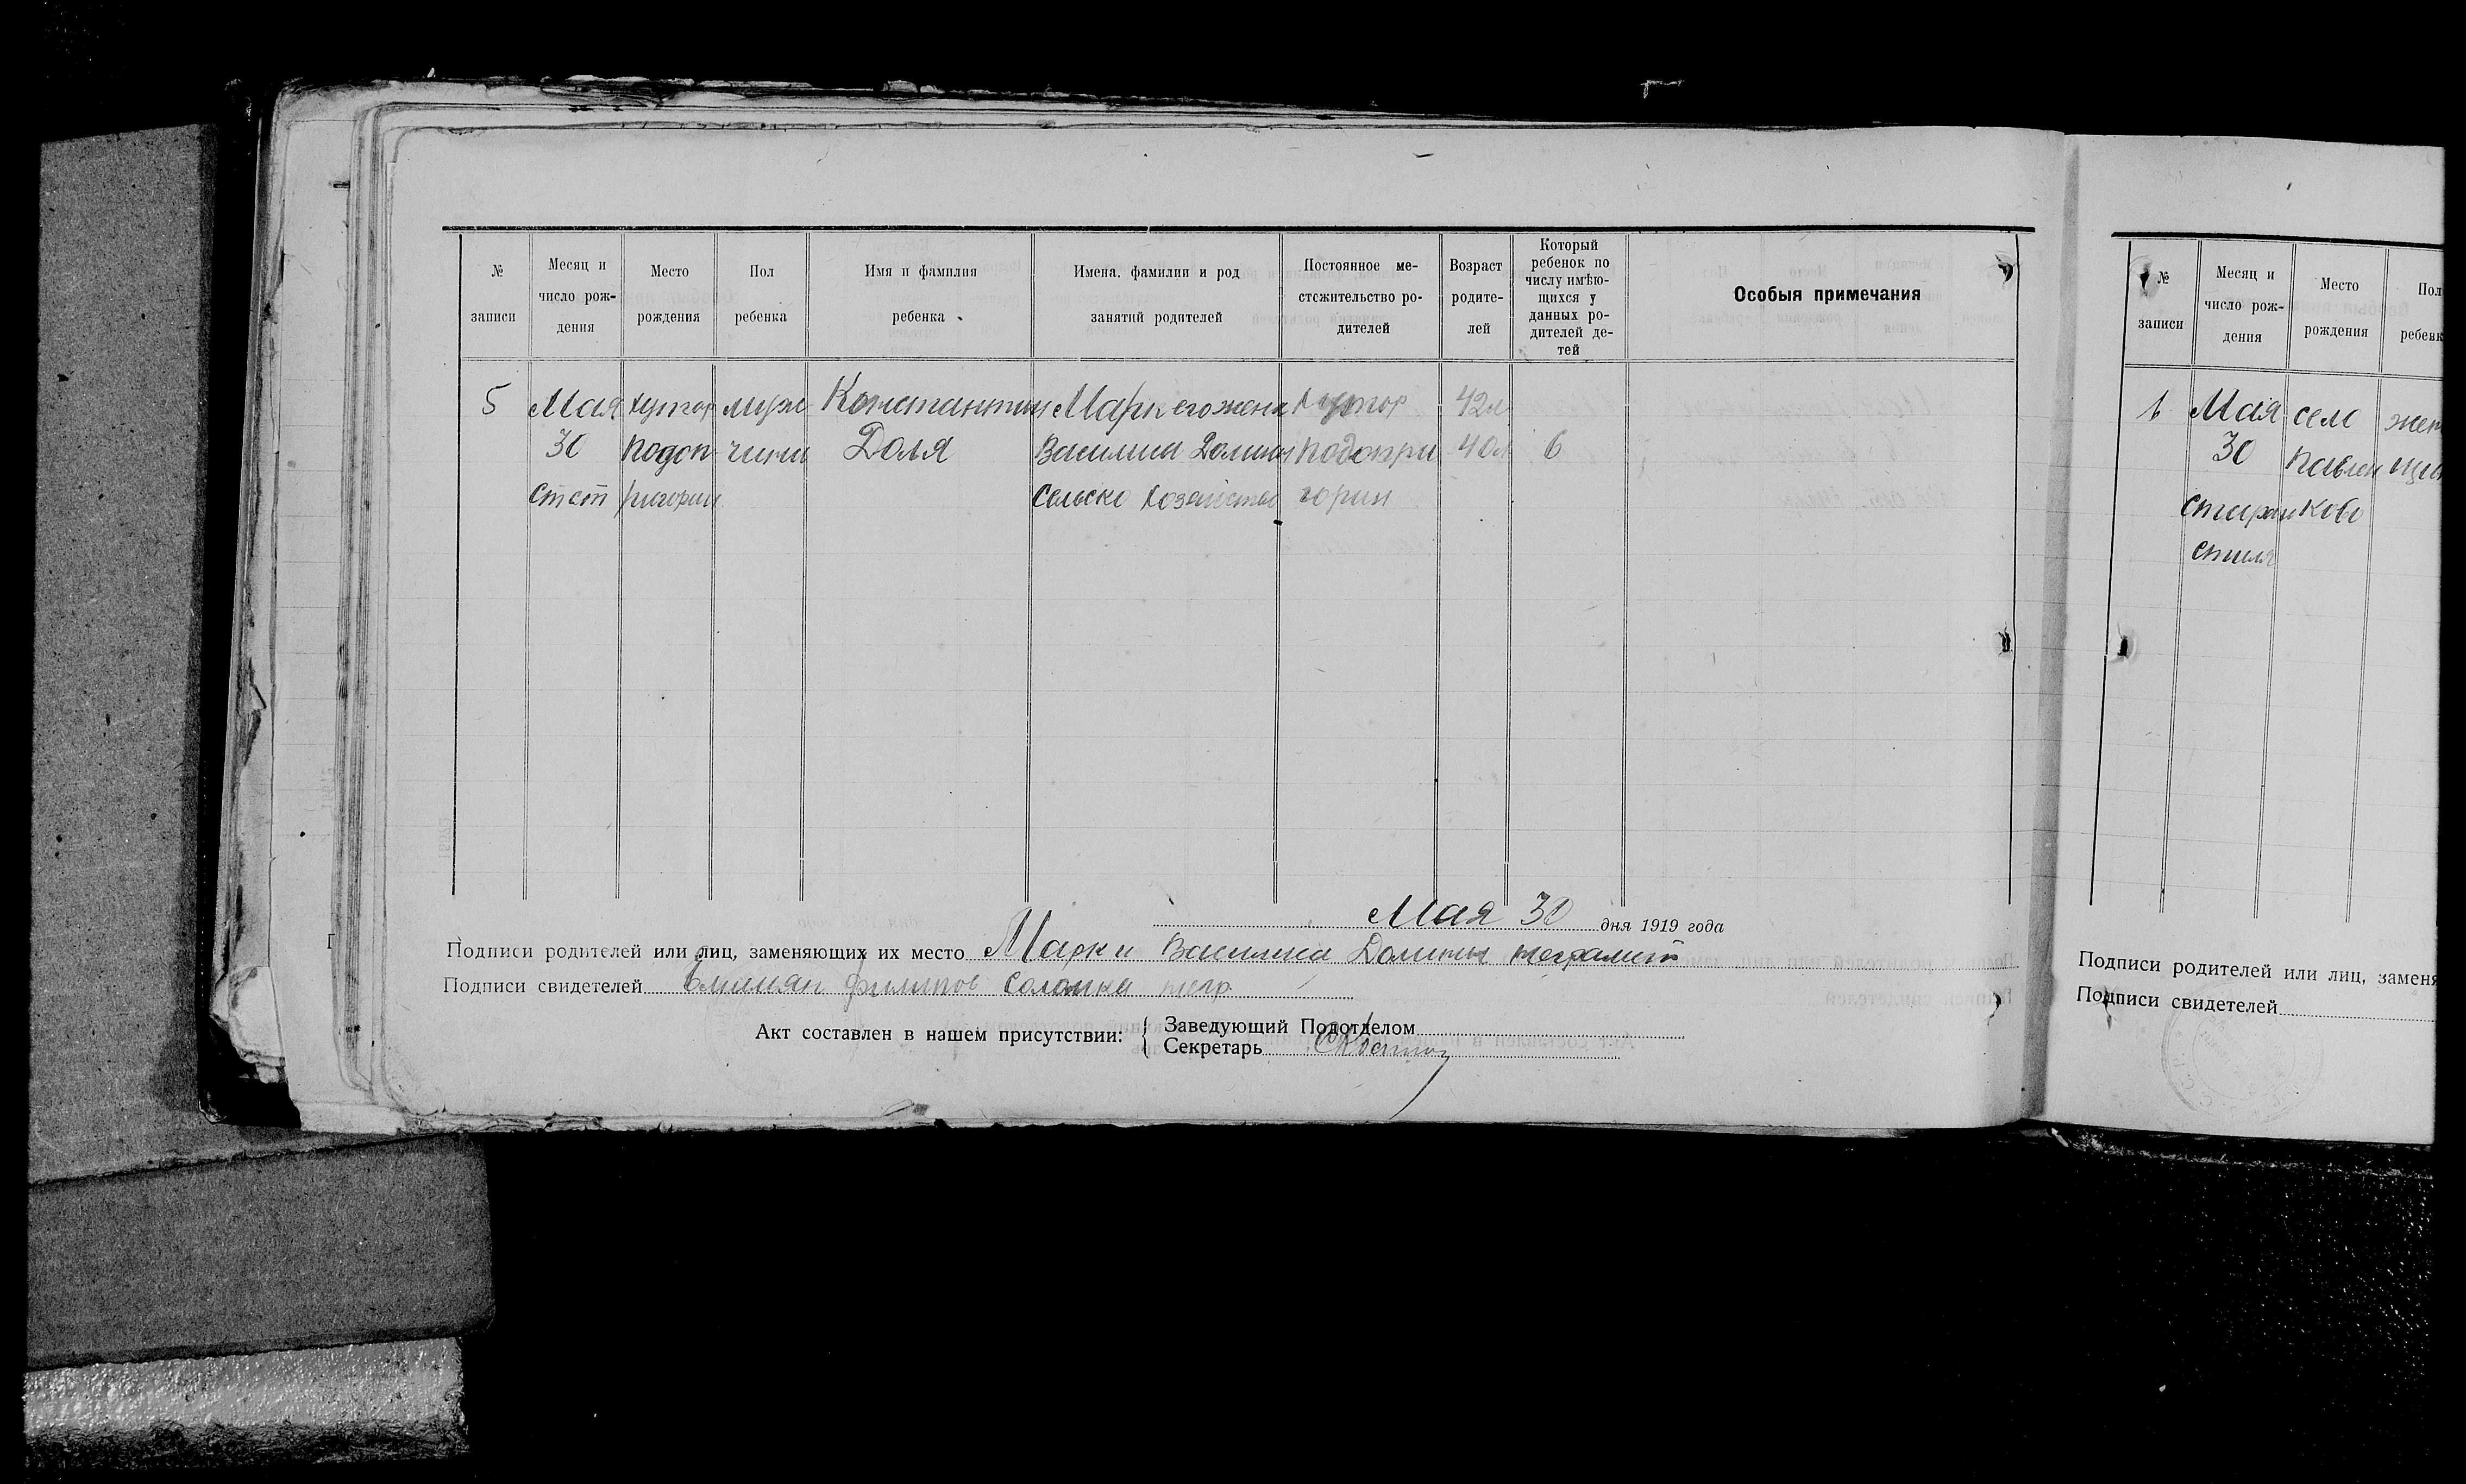 № записи
Месяц и число рождения
Место рождения
Пол ребенка
Имя и фамилия ребенка
Имена. фамилии и род занятий родителей
Постоянное местожительство родителей
Возраст родителей
Который ребенок по числу имѣющихся у данных родителей детей
Особыя примечания
5 Мая хутор муж Константин Марк его жена Хутор 42л
30 Подоп чини Доля Василиса Долины Подопри 40л 6
ст ст ригорин Сельско хозяйство горин
Мая 30 дня 1919 года
Подписи родителей или лиц, заменяющих их место Марк и Василиса Долины неграмот
Подписи свидетелей Емилиян Филипов Соломка негр
Акт составлен в нашем присутствии:
Заведующий Подотделом
Секретарь
№ записи
Месяц и число рождения
Место рождения
Пол
ребенк
Мая село жен
30 Павлен
Стараго ково
стиля
Подписи родителей или лиц, заменя
Подписи свидетелей